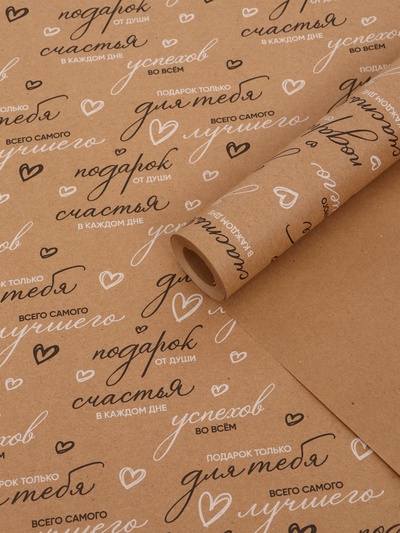 подарок
ОТ ДУШИ
счастья
В КАЖДОМ ДНЕ
успехов
ВО ВСЁМ
ПОДАРОК ТОЛЬКО
для тебя
ВСЕГО САМОГО
лучшего
подарок
ОТ ДУШИ
счастья
В КАЖДОМ ДНЕ
ПОДАРОК ТОЛЬКО
тебя
ВСЕГО САМОГО
лучшего
подарок
ОТ ДУШИ
счастья
В КАЖДОМ ДНЕ
успехов
ВО ВСЁМ
ПОДАРОК ТОЛЬКО
тебя
ПОДАРОК ТОЛЬКО
для тебя
ВСЕГО САМОГО
лучшего
ВСЕГО САМОГО
лучшего